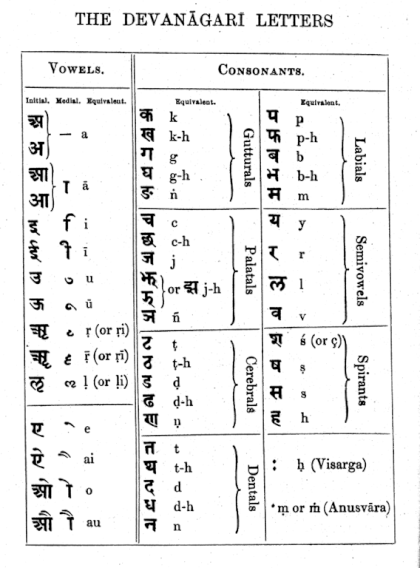 THE DEVANĀGARĪ LETTERS
VOWELS.
Initial. Medial. Equivalent.
अ
अ } — a
आ
आ } ा ā
इ ि i
ई ी ī
उ ु u
ऊ ू ū
ऋ ृ ṛ (or ṛi)
ॠ ॄ ṝ (or ṝī)
ऌ ॢ ḷ (or ḷi)
ए े e
ऐ ै ai
ओ ो o
औ ौ au
CONSONANTS.
Equivalent.
क k
ख k-h
ग g
घ g-h
ङ ṅ
Gutturals
च c
छ c-h
ज j
झ
झ } or झ j-h
ञ ñ
Palatals
ट ṭ
ठ ṭ-h
ड ḍ
ढ ḍ-h
ण ṇ
Cerebrals
त t
थ t-h
द d
ध d-h
न n
Dentals
Equivalent.
प p
फ p-h
ब b
भ b-h
म m
Labials
य y
र r
ल l
व v
Semivowels
श ś (or ç)
ष ṣ
स s
ह h
Spirants
ः ḥ (Visarga)
ं ṃ or ṁ (Anusvāra)